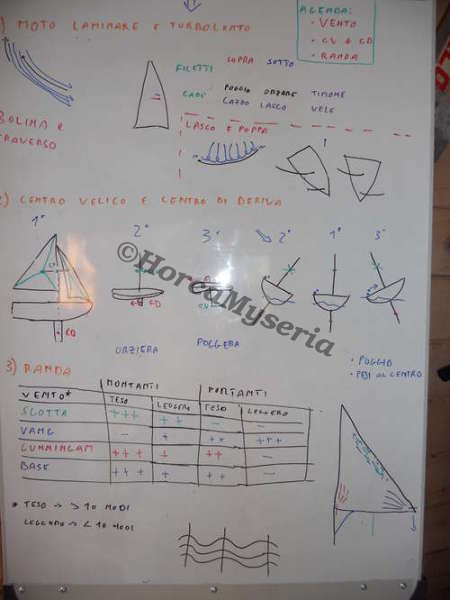 AGENDA:
• VENTO
• CV e CD
• RANDA
) MOTO LAMINARE E TURBOLENTO
SOPRA SOTTO
FILETTI
CADE POGGIO ORZARE TIMONE
CAZZO LASCO VELE
BOLINA E
TRAVERSO
LASCO E POPPA
2) CENTRO VELICO E CENTRO DI DERIVA
1° 2° 3° 2° 1° 3°
©HoreaMyseria
CD
ORZIERA POGGERA
• POGGIO
• PESI AL CENTRO
3) RANDA
MONTANTI PORTANTI
VENTO* TESO LEGGERO TESO LEGGERO
SCOTTA +++ ++ - -
VANG - + ++ +++
CUNNINGAM +++ + ++ -
BASE +++ + + -
* TESO -> > 10 NODI
LEGGERO -> < 10 NODI